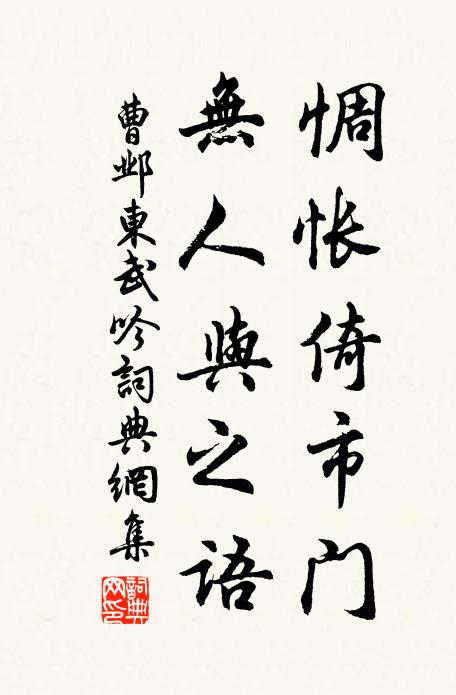 惆怅倚市门
無人與之语
曹邺東武吟詞典網集
詞典网印